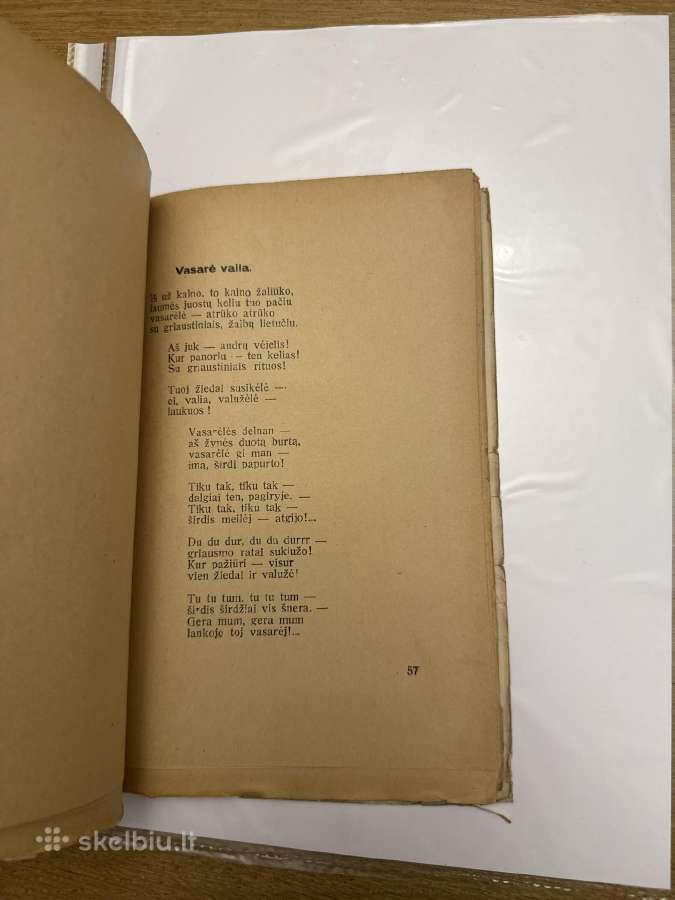 Vasarė valia.
Iš už kalno, to kalno žaliūko,
laumės juostų keliu tuo pačiu
vasarėlė — atrūko atrūko
su griaustiniais, žaibų lietučiu.
Aš juk — audrų vėjelis!
Kur panoriu — ten kelias!
Su griaustiniais rituos!
Tuoj žiedai susikėlė —
ei, valia, valužėlė —
laukuos!
Vasarėlės delnan —
aš žynės duotą burtą,
vasarėlė gi man —
ima, širdį papurto!
Tiku tak, tiku tak —
dalgiai ten, pagiryje. —
Tiku tak, tiku tak —
širdis meilėj — atgijo!...
Du du dur, du du durrr —
griausmo ratai sukliužo!
Kur pažiūri — visur
vien žiedai ir valužė!
Tu tu tum, tu tu tum —
širdis širdžiai vis šnera. —
Gera mum, gera mum
laukoje toj vasarėj!...
57
skelbiu.lt